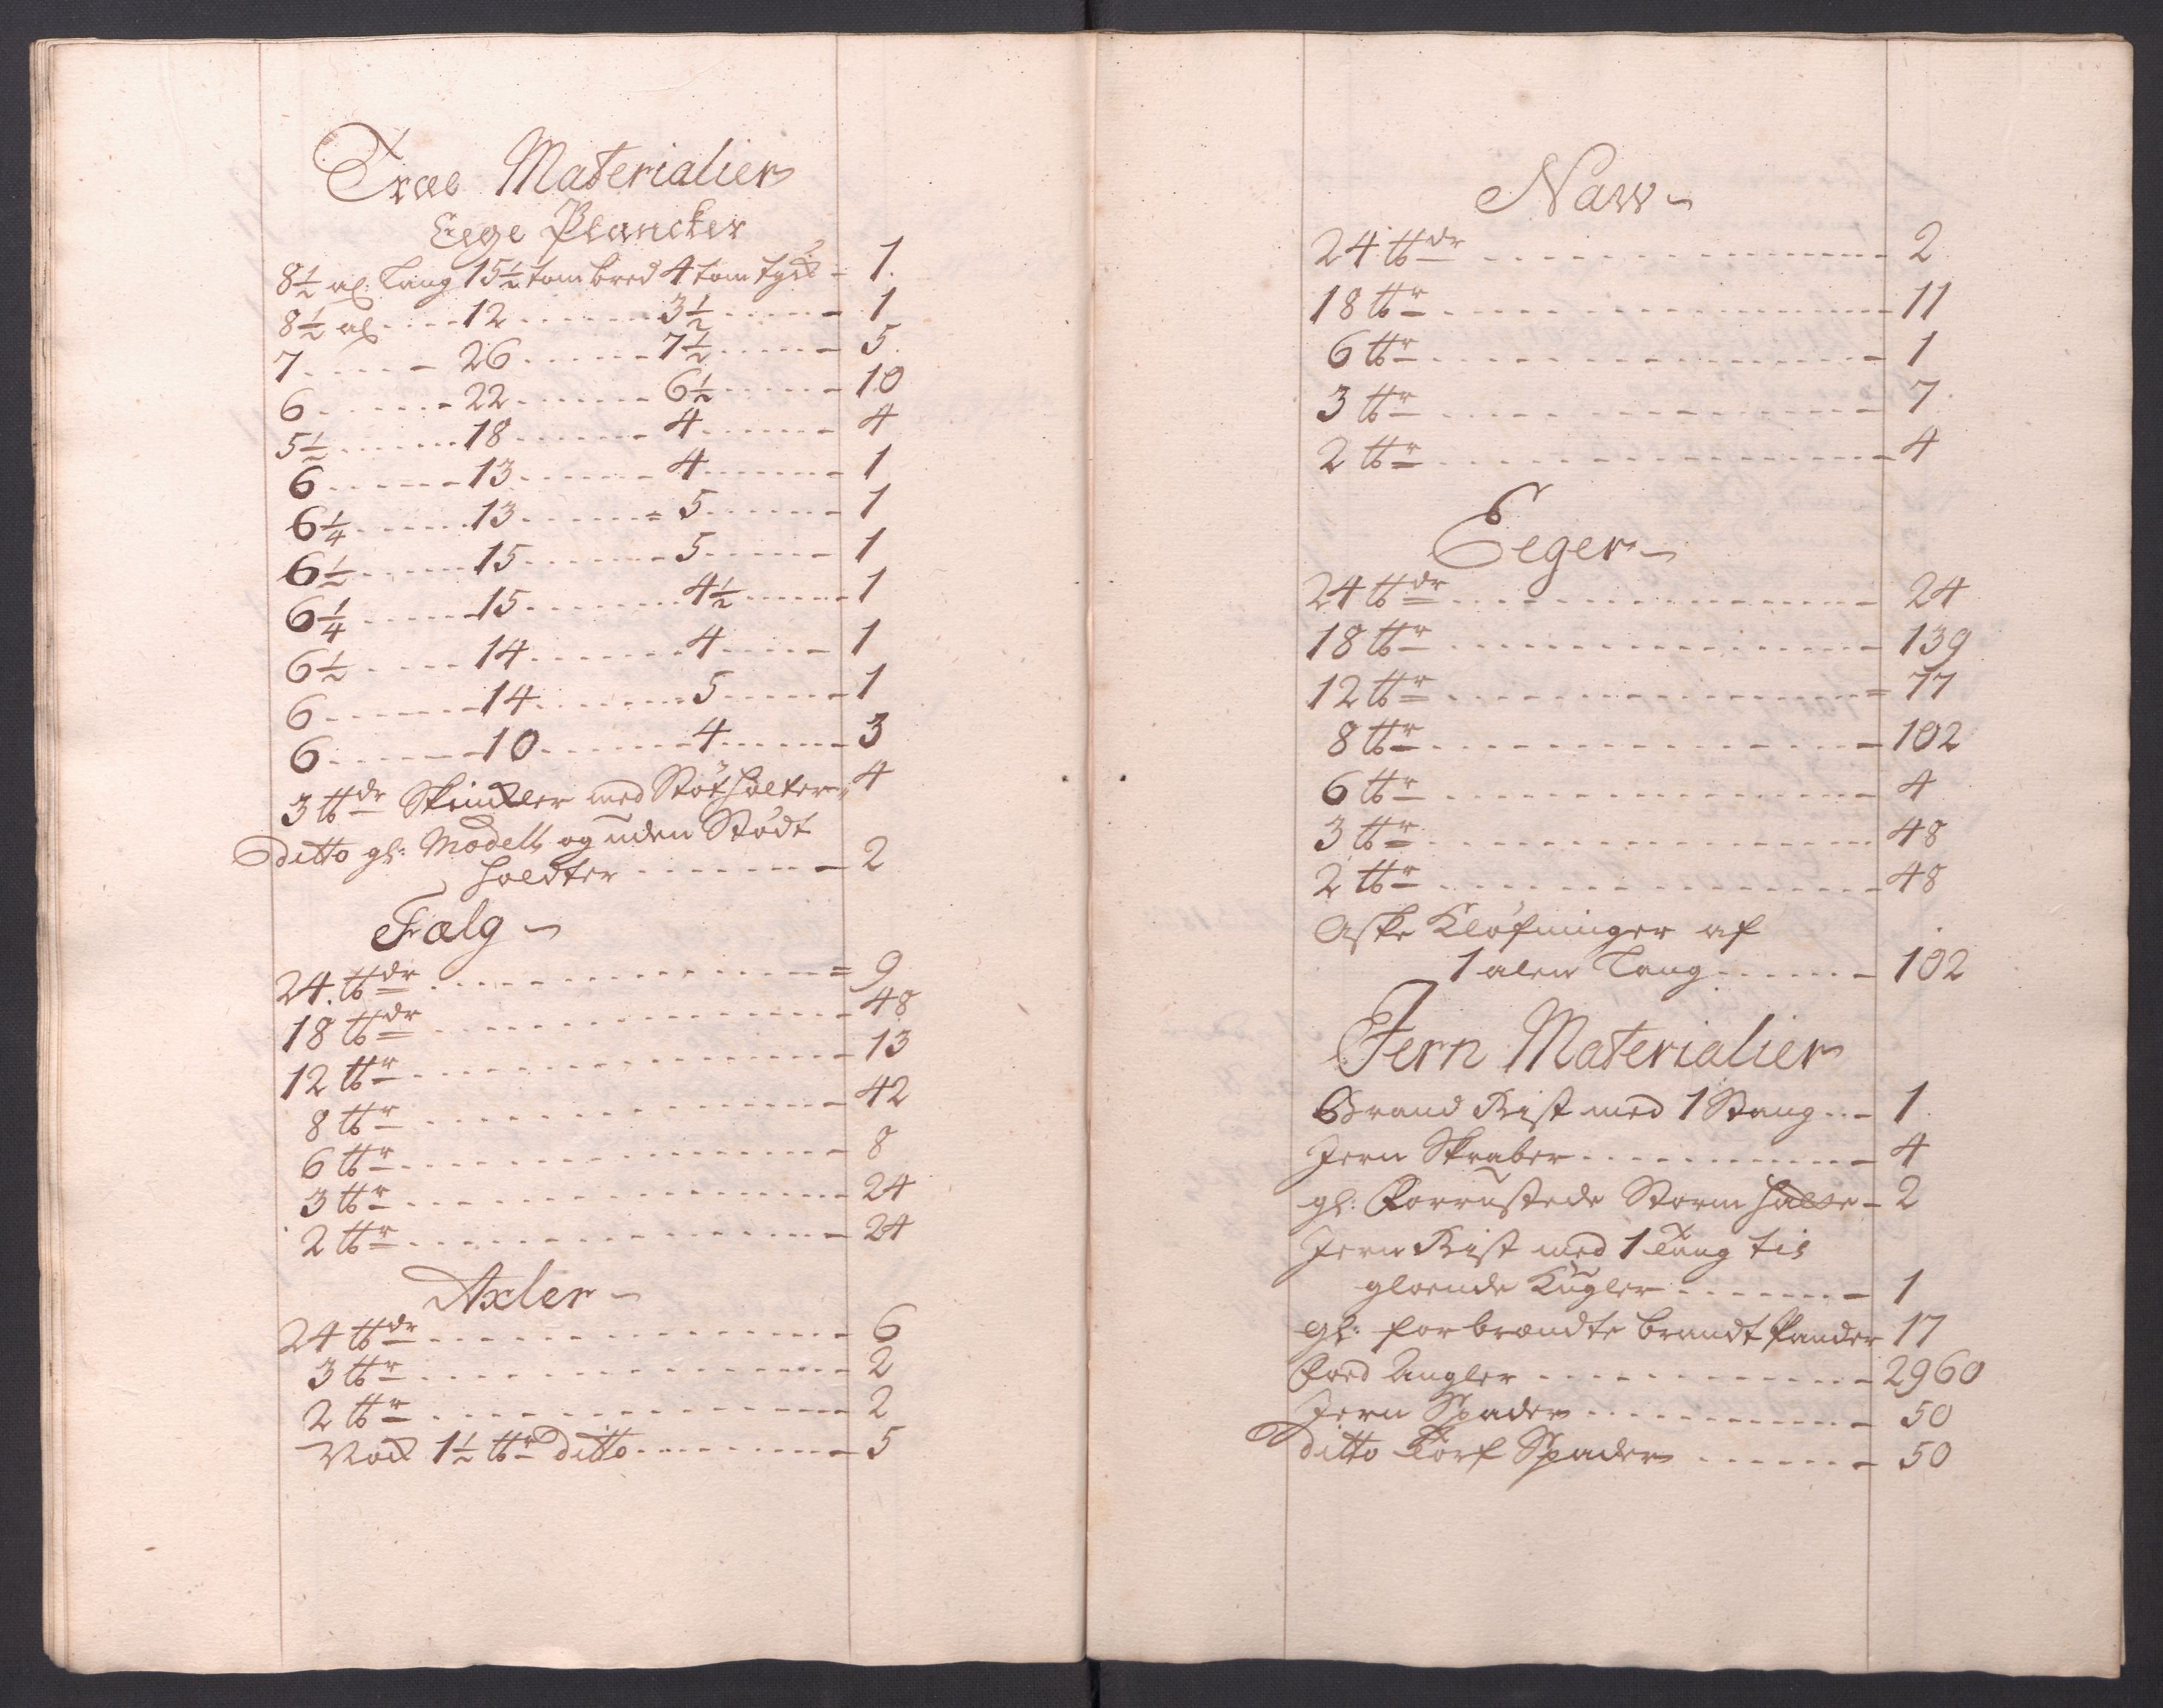 Træe Materialier
Eege Plancker
8½ al: Lang 15½ tom bred 4 tom tyck - 1.
8½ al .... 12 ...... 3½ ..... 1
7 ..... 26 ...... 7½ ..... 5.
6 ...... 22 ...... 6½ ..... 10
5½ ...... 18 ...... 4 ...... 4
6 ...... 13 ...... 4 ...... 1
6¼ ...... 13 ...... 5 ...... 1
6½ ...... 15 ...... 5 ...... 1
6¼ ..... 15 ...... 4½ ...... 1
6½ ..... 14 ...... 4 ..... 1
6 ...... 14 ...... 5 ...... 1
6 ...... 10 ...... 4 ...... 3
3 ℔dr Skinkler med Støtholter 4
Ditto gl: Modell og uden Stødt
holdter ....... 2
Fælg
24 ℔dr ............ 9
18 ℔dr ............ 48
12 ℔r ............ 13
8 ℔r ............ 42
6 ℔r ............ 8
3 ℔r ............ 24
2 ℔r ............ 24
Axler
24 ℔dr ............ 6
3 ℔r ............ 2
2 ℔r ............ 2
1½ ℔r Ditto ........ 5
Naw
24 ℔dr ............ 2
18 ℔r ............ 11
6 ℔r ............ 1
3 ℔r ............ 7
2 ℔r ............ 4
Eeger
24 ℔dr ............ 24
18 ℔r ............ 139
12 ℔r ............ 77
8 ℔r ............ 102
6 ℔r ............ 4
3 ℔r ............ 48
2 ℔r ............ 48
Aske Kløfninger af
1 alen Lang ...... 102
Jern Materialier
Brand Rist med 1 Stang ... 1.
Jern Skraber ........... 4
gl: Forrustede Storm Hatte - 2
Jern Rist med 1 Tang til
gloende Kugler ....... 1
gl: forbrændte brandt Pander 17
Foed Angler ............ 2960
Jern Spader ........... 50
Ditto Törf Spader ...... 50